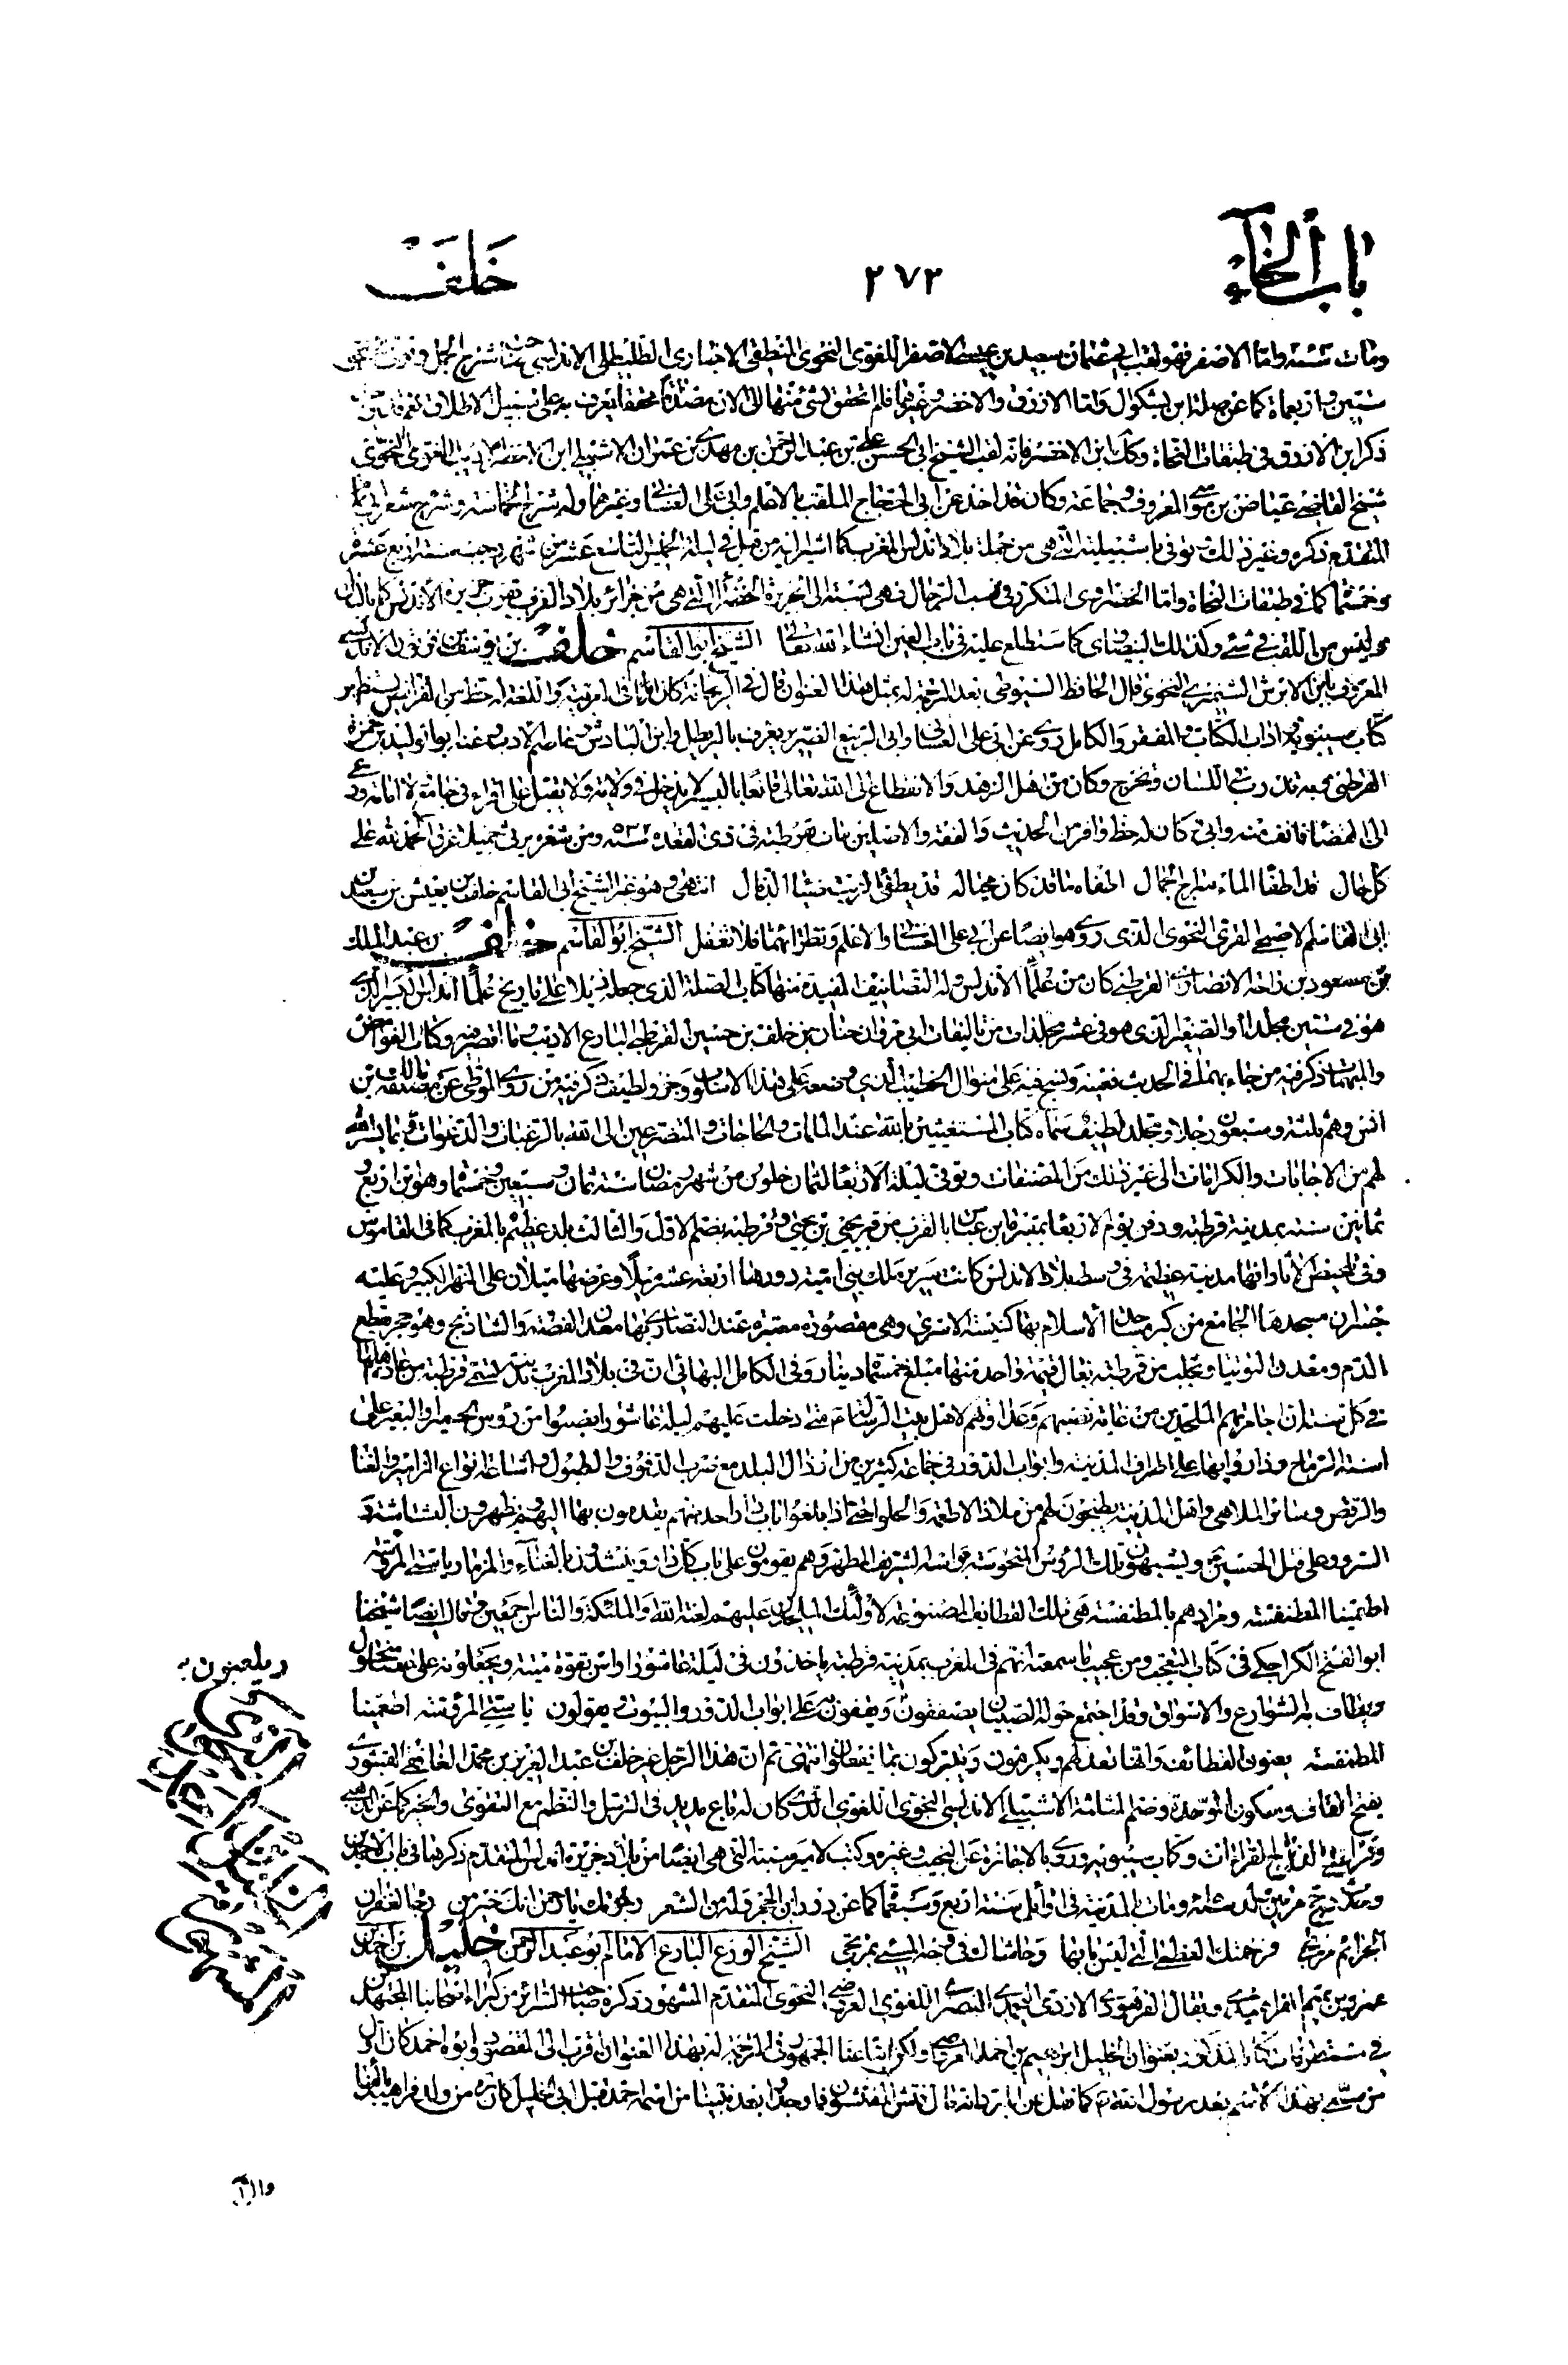 باب الخاء
٢٧٣
خلف
ومات سنة واما الاصفر فهو لقب ابى عثمان سعيد بن عيسى الاصفر اللغوى النحوى المنطقى الاخبارى الطليطلى الاندلسى شرح الجمل
ستين واربعماة كما عن صلة ابن بشكوال واما الازرق والاخضر وغيرهما فلم اتحقق لشئ منها الى الان مصداقا محققا يعرف به على سبيل الاطلاق نعم
ذكر ابن الازرق فى طبقات النحاة وكك ابن الاخضر فانه لقب الشيخ ابى الحسن على بن عبد الرحمن بن مهدى بن عمران الاشبيلى ابن الاخضر الاديب اللغوى النحوى
شيخ القاضى عياض بن موسى المعروف وجماعة وكان قد اخذ عن ابى الحجاج الملقب بالاعلم وابى على الغسانى وغيرهما وله شرح الحماسة وشرح شعر ابى تمام
المتقدم ذكره وغير ذلك توفى باشبيلية التى هى من جملة بلاد اندلس المغرب كما اشير اليه من قبل فى ليلة الخميس التاسع عشر من شهر رجب سنة اربع عشرة
وخمسمأة كما فى طبقات النحاة واما الخضراوى المتكرر فى نسب الرجال فهى نسبته الى الجزيرة الخضراء التى هى من جزائر بلاد المغرب بقرب جزيرة الاندلس كما بالبال
وليس من اللقب فى شئ وكذلك البيضاوى كما ستطلع عليه فى باب العين انشاء الله تعالى الشيخ ابو القاسم خلف بن يوسف بن فرتون الاندلسى
المعروف بابن الابرش الشنترينى النحوى قال الحافظ السيوطى بعد الترجمة له بمثل هذا العنوان قال فى الريحانة كان اماما فى العربية واللغة له حظ من الفرائض يستظهر
كتاب سيبويه وادب الكتاب والمقتضب والكامل روى عن ابى على الغسانى وابى الربيع الضرير يعرف بالبربطل وابن الباذش وعاصم الادب وعنه ابو الوليد بن خيرة
القرطبى وبه تدرب اللسان وتخرج وكان من اهل الزهد والانقطاع الى الله تعالى قانعا باليسير لا يدخل فى ولاية ولا يقبل على اقراء فى جامع ولا امامة ودعى
الى القضاء فانف منه وابى كان له حظ وافر من الحديث والفقه والاصلين مات بقرطبة فى ذى القعدة سنة ٥٣٢ ومن شعره يرثى جميلا غرق الحمد لله على
كل حال قد اطفا الماء سراج الجمال اطفاه ما قد كان محيا له قد يطفئ الزيت ضياء الذبال انتهى وهو غير الشيخ ابى القاسم خلف بن يعيش بن سعيد بن
ابى القاسم الاصبحى المقرى النحوى الذى روى هو ايضا عن ابى على الغسانى والاعلم ونظرائهما فلا تغفل الشيخ ابو القاسم خلف بن عبد الملك
بن مسعود بن داحة الانصارى القرطبى كان من علماء الاندلس وله التصانيف المفيدة منها كتاب الصلة الذى جعله ذيلا على تاريخ علماء اندلس الكبير الذى
هو فى ستين مجلدا والصغير الذى هو فى عشر مجلدات من تاليفات ابى مروان حيان بن خلف بن حسين القرطبى البارع الاديب وما اقصره وكتاب الغوامض
والمبهمات ذكر فيه من جاء مبهما فى الحديث فعينه ونسج فيه على منوال الخطيب الذى وضعه على هذا الاسلوب وجزء لطيف ذكر فيه من روى الموطأ عن مالك بن
انس وهم ثلثة وسبعون رجلا ومجلد لطيف سماه كتاب المستغيثين بالله عند الملمات والحاجات والمتضرعين الى الله بالرغبات والدعوات وما يسر الله
لهم من الاجابات والكرامات الى غير ذلك من المصنفات وتوفى ليلة الاربعا لثمان خلون من شهر رمضان سنة ثمان وسبعين وخمسمأة وهو ابن اربع و
ثمانين سنة بمدينة قرطبة ودفن يوم الاربعا بمقبرة ابن عباس بالقرب من قبر يحيى بن يحيى وقرطبة بضم الاول والثالث بلد عظيم بالمغرب كما فى القاموس
وفى تلخيص الاثار انها مدينة عظيمة فى وسط بلاد الاندلس كانت سرير ملك بنى امية دورها اربعة عشر ميلا وعرضها ميلان على النهر الكبير وعليه
جسران مسجدها الجامع من اكبر مساجد الاسلام بها كنيسة الاسرى وهى مقصودة معتبرة عند النصارى بها معدن الفضة والشاذنج وهو حجر يقطع
الدم ومعدن التوتيا وتجلب من قرطبة بغال قيمة واحد منها مبلغ خمسمأة دينار وفى الكامل البهائى ان فى بلاد المغرب بلدة تسمى قرطبة من عادة اهلها
فى كل سنة ان جاهليتهم الملحدين من غاية نصبهم وعداوتهم لاهل بيت الرسالة ع متى دخلت عليهم ليلة عاشورا يضعوا من رؤس الحمير والبعير على
اسنة الرماح وداروا بها على اطراف المدينة وابواب الدور فى جماعة كثيرين من ارذال البلد مع ضرب الدفوف والطبول واشاعة انواع المزامير والغنا
والرقص وسائر الملاهى واهل المدينة يطبخون لهم من ملاذ الاطعمة والحلوا حتى اذا بلغوا باب دار احد منهم يقدمون بها اليهم ويظهرون البشاشة و
السرور على قتل الحسين ع ويشبهون تلك الرؤس المنحوسة براسه الشريف المطهر وهم يقومون على باب كل دار وينشدون بالغناء والمزمار يا ستى المروسة
اطعمينا المطنفسة ومرادهم بالمطنفسة هى تلك القطائف المصنوعة لاولئك الملحدين عليهم لعنة الله والملئكة والناس اجمعين وقال ايضا شيخنا
ابو الفتح الكراجكى فى كتاب التعجب ومن عجيب ما سمعته انهم فى المغرب بمدينة قرطبة ياخذون فى ليلة عاشورا راس بقرة ميتة ويجعلونه على عصا ويحمل
ويطاف به الشوارع والاسواق وقد اجتمع حوله الصبيان يصفقون ويلعبون به ويقفون به على ابواب الدور والبيوت ويقولون يا ستى المروسة اطعمينا
المطنفسة يعنون القطائف وانها تعد لهم ويكرمون ويتبركون بما يفعلون انتهى ثم ان هذا الرجل غير خلف بن عبد العزيز بن محمد الغافقى القبتورى
بفتح القاف وسكون الموحدة وضم المثناة الاشبيلى الاندلسى النحوى اللغوى الذى كان له باع مديد فى الترسل والنظم مع التقوى والخير كما عن الذهبى
وقرا على الدباج القراءات وكتاب سيبويه وروى بالاجازة عن النجيب وغيره وكتب لامير سبتة التى هى ايضا من بلاد جزيرة اندلس المتقدم ذكرها فى باب الاحمدين
وحج مرتين ومات بالمدينة فى اوائل سنة اربع وسبعمأة كما عن درر ابن حجر وله من الشعر رجوتك يا رحمن انك خير من رجاه لغفران
الجرائم مرتجى فرحمتك العظمى التى ليس بابها وحاشاك فى وجه المسئ بمرتج الشيخ الورع البارع الامام ابو عبد الرحمن خليل بن احمد بن
عمرو بن تميم الفراهيدى ويقال الفرهودى الازدى اليحمدى البصرى اللغوى العروضى النحوى المتقدم المشهور ذكره صاحب السرائر من كبراء اصحابنا المجتهدين
فى مستطرفات كتابه المذكور بعنوان الخليل بن ابراهيم بن احمد العروضى ولكن اتباعنا الجمهور فى الترجمة له بهذا العنوان اقرب الى المقصود وابوه احمد كان اول
من سمى بهذا الاسم بعد رسول الله ص كما نقل عن المبرد انه قال فتش المفتشون فما وجدوا بعد نبينا من اسمه احمد قبل ابى الخليل كان ره من ولد فراهيد بالفتح
ويلعبون به